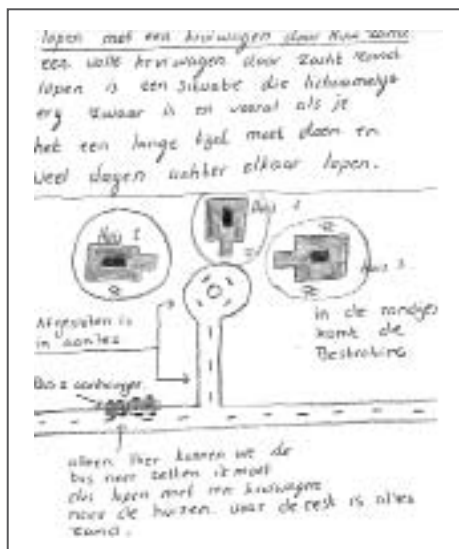 lopen met een kruiwagen door zand
een volle kruiwagen door zacht zand
lopen is een situatie die lichamelijk
erg zwaar is en vooral als je
het een lange tijd moet doen en
veel dagen achter elkaar lopen.
Huis 1
Huis 2
Huis 3
in de rondjes
komt de
Bestrating
Afgesloten is
in aanleg
Bus + aanhanger
alleen hier kunnen we de
bus neer zetten ik moet
dus lopen met een kruiwagen
naar de huizen. voor de rest is alles
zand.